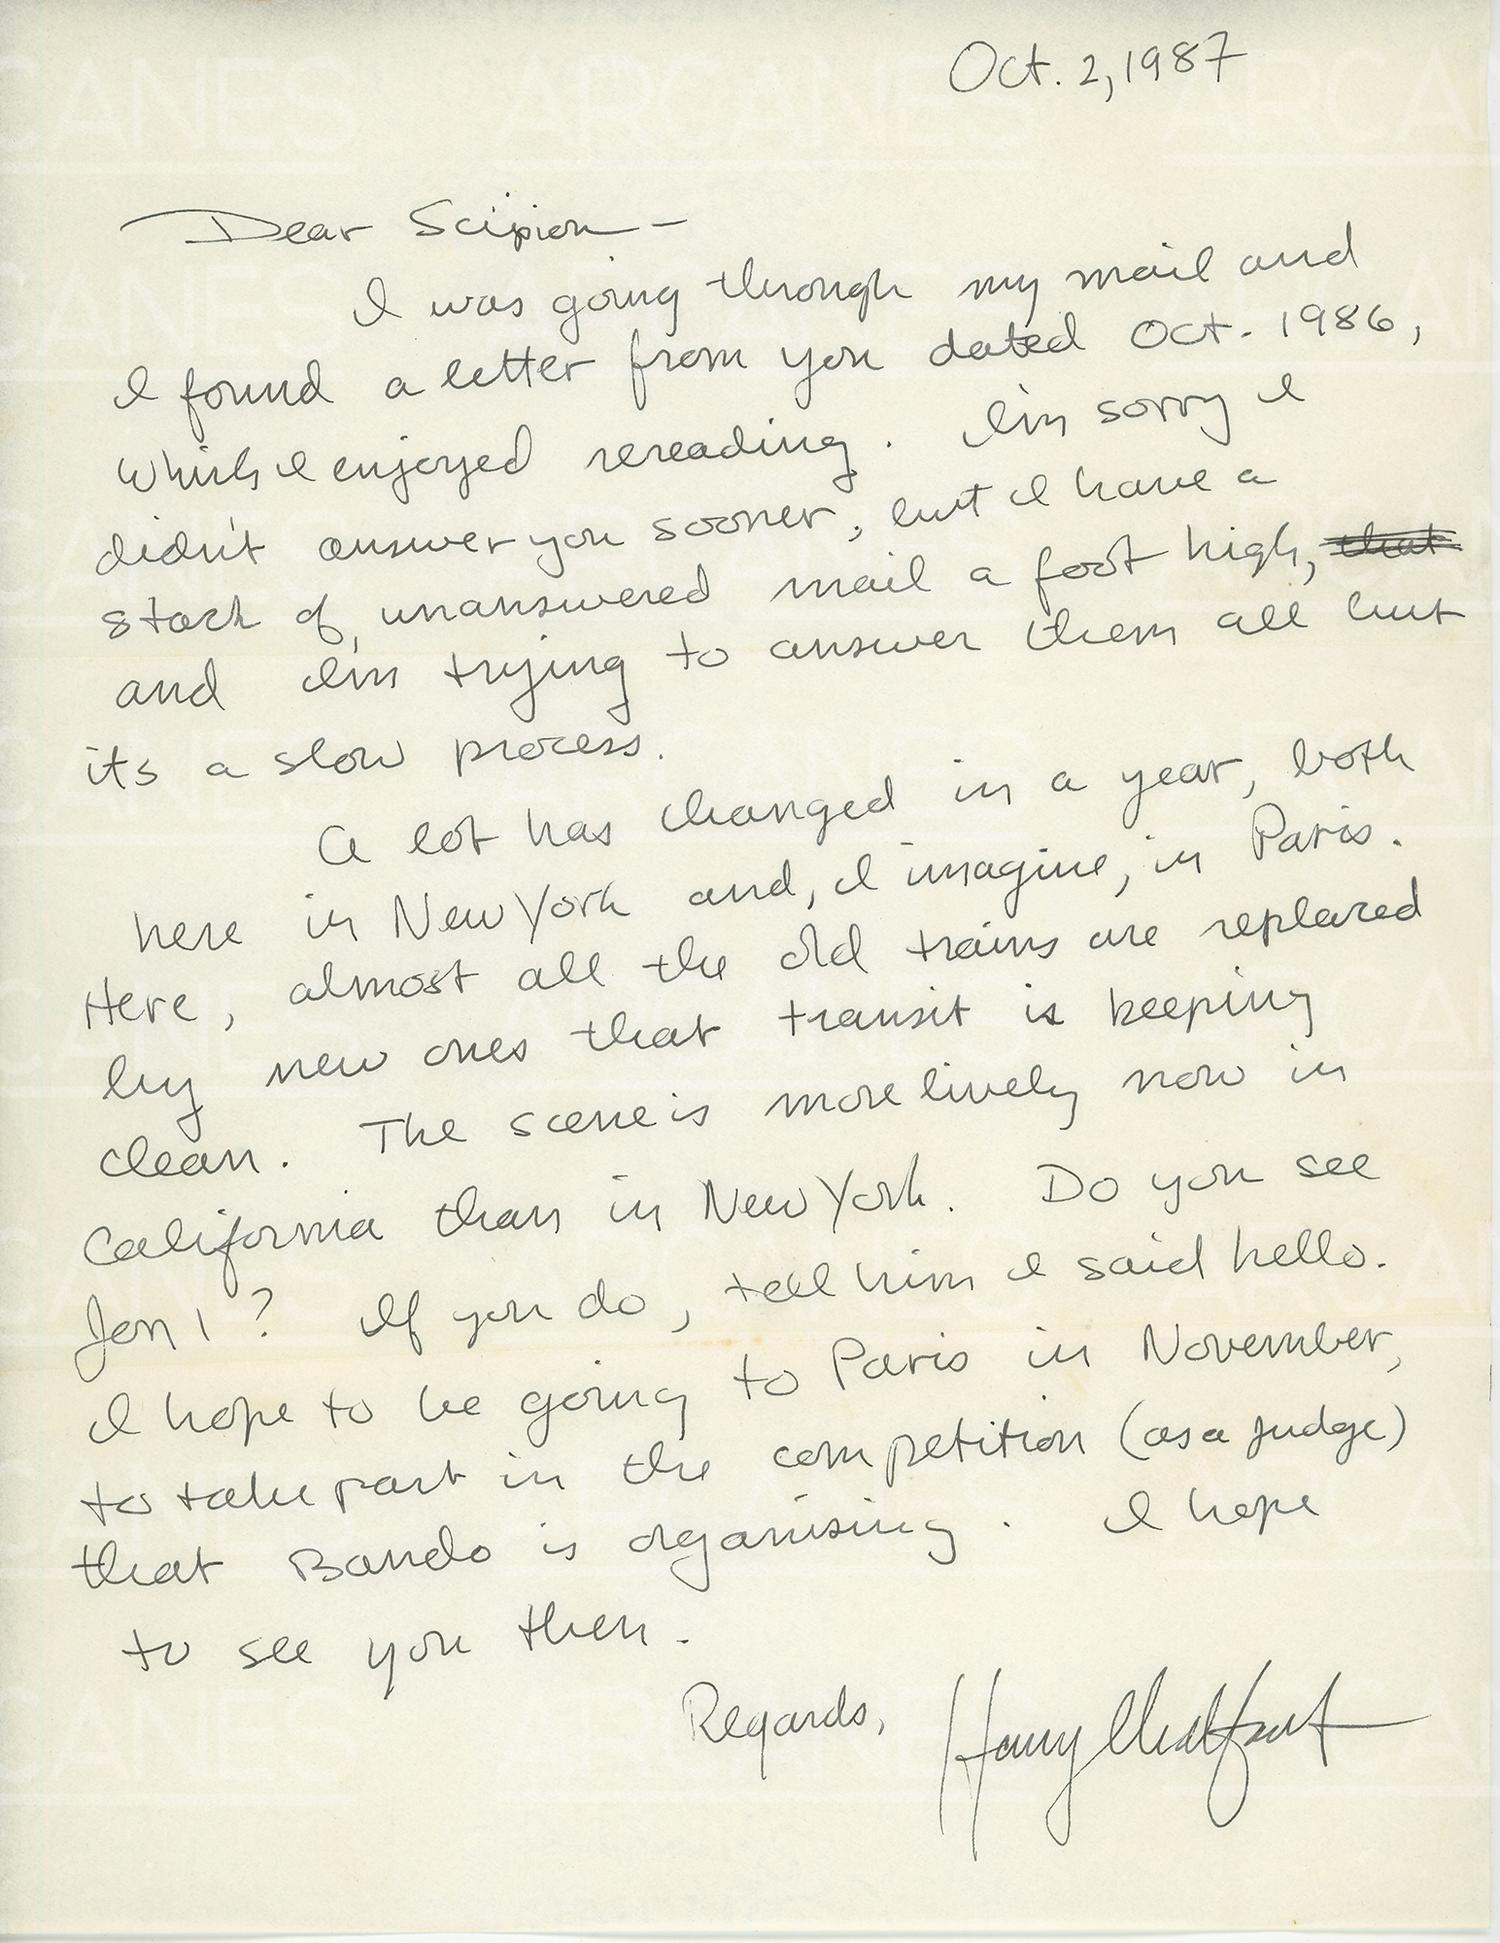 Oct. 2, 1987
Dear Scipion —
I was going through my mail and
I found a letter from you dated Oct. 1986,
which I enjoyed rereading. I'm sorry I
didn't answer you sooner, but I have a
stack of unanswered mail a foot high, that
and I'm trying to answer them all but
its a slow process.
A lot has changed in a year, both
here in New York and, I imagine, in Paris.
Here, almost all the old trains are replaced
by new ones that transit is keeping
clean. The scene is more lively now in
California than in New York. Do you see
Jon 1? If you do, tell him I said hello.
I hope to be going to Paris in November,
to take part in the competition (as a judge)
that Bando is organising. I hope
to see you then.
Regards, Henry Chalfant
ARCANES